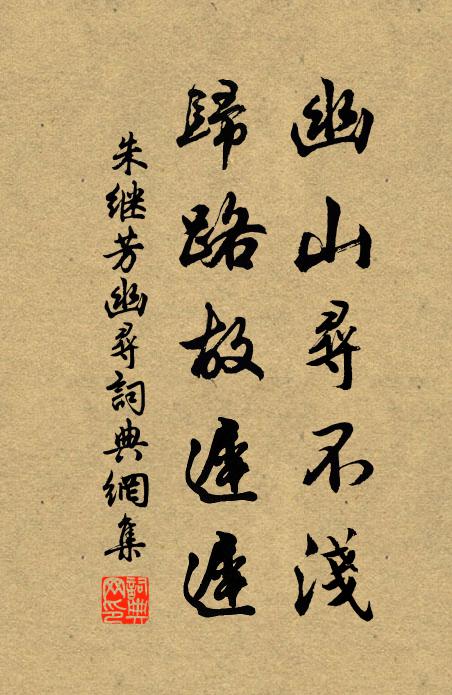 幽山尋不淺
歸路故遲遲
朱继芳幽尋詞典網集
詞典網印